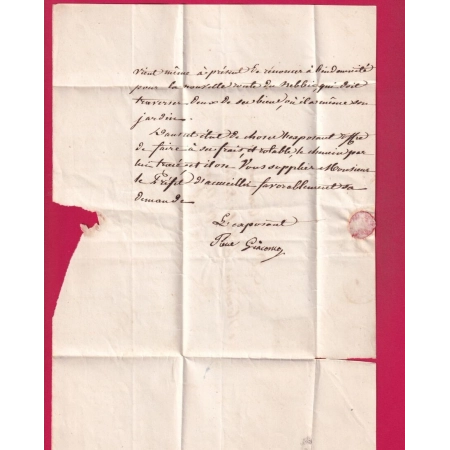 vient même à présent de renoncer à l'indemnité
pour la nouvelle route du Nebbio qui doit
traverser deux de ses biens, où il a même son
jardin.
Dans cet état de choses l'exposant offre
de faire à ses frais, et rétablir, le chemin par
lui tracé et il ose Vous supplier Monsieur
le Préfet d'accueillir favorablement sa
demande
L'exposant
Giacomo